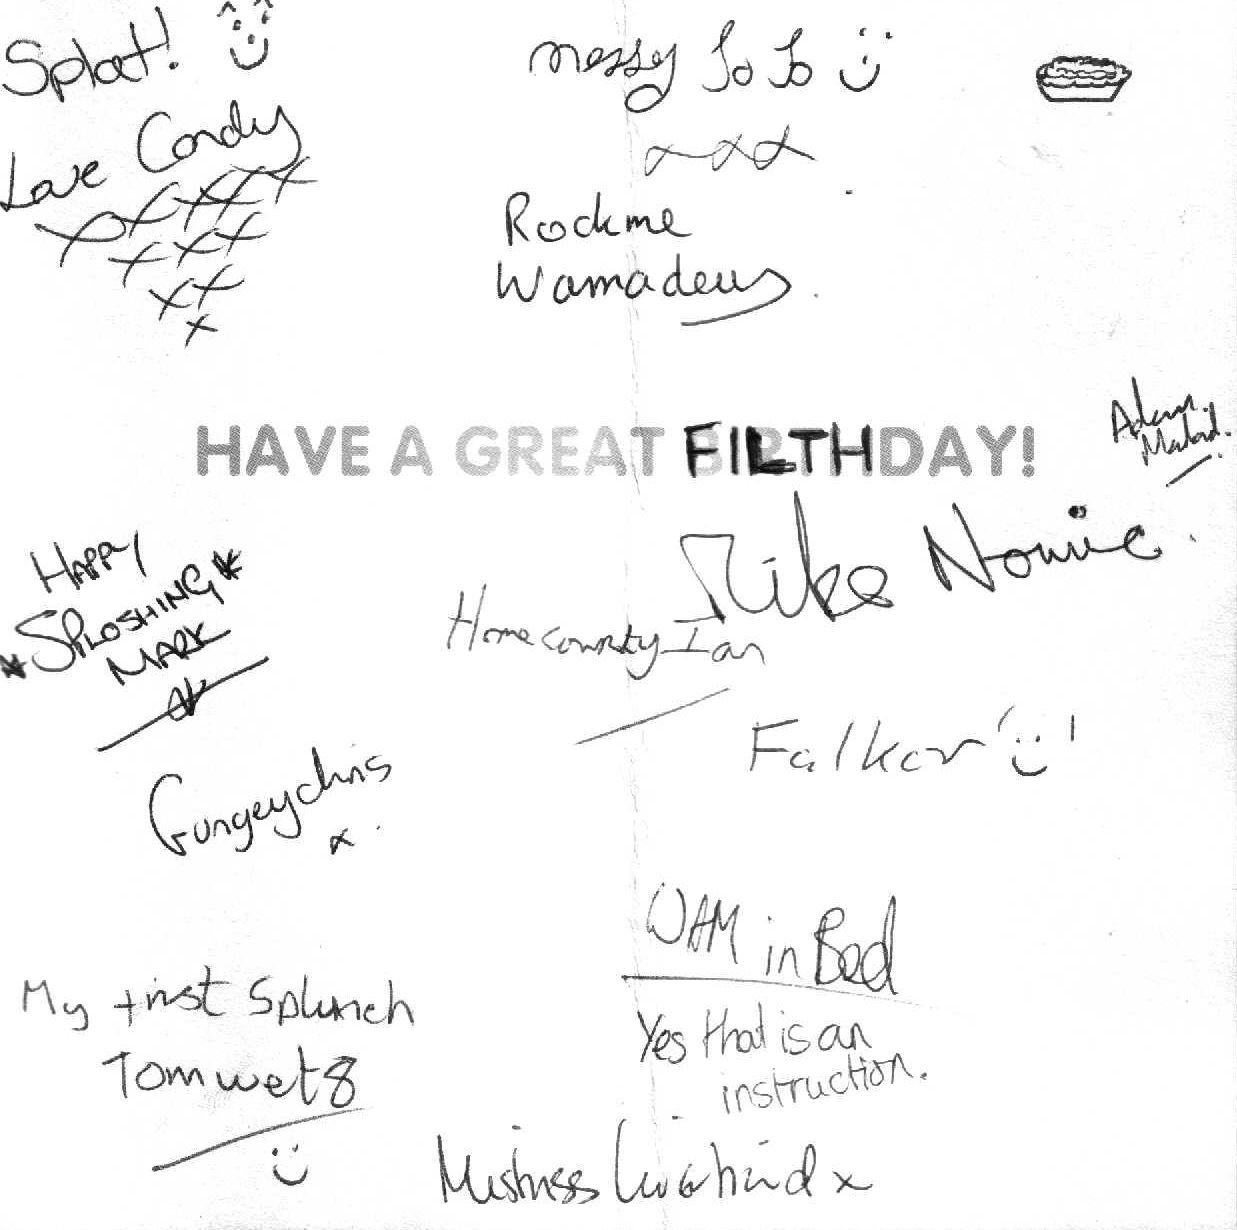 Splat!
Love Candy
xxxx
xxx
xx
x
messy JoJo
xxx
Rockme
Wamadeus
HAVE A GREAT FILTHDAY!
Adam
Mike
HAPPY
*SPLOSHING*
MARK
HomecountyIan
Falkor
Gungeychris
x
WAM in Bed
Yes that is an
instruction.
My first Splunch
Tomwet8
Mistress x